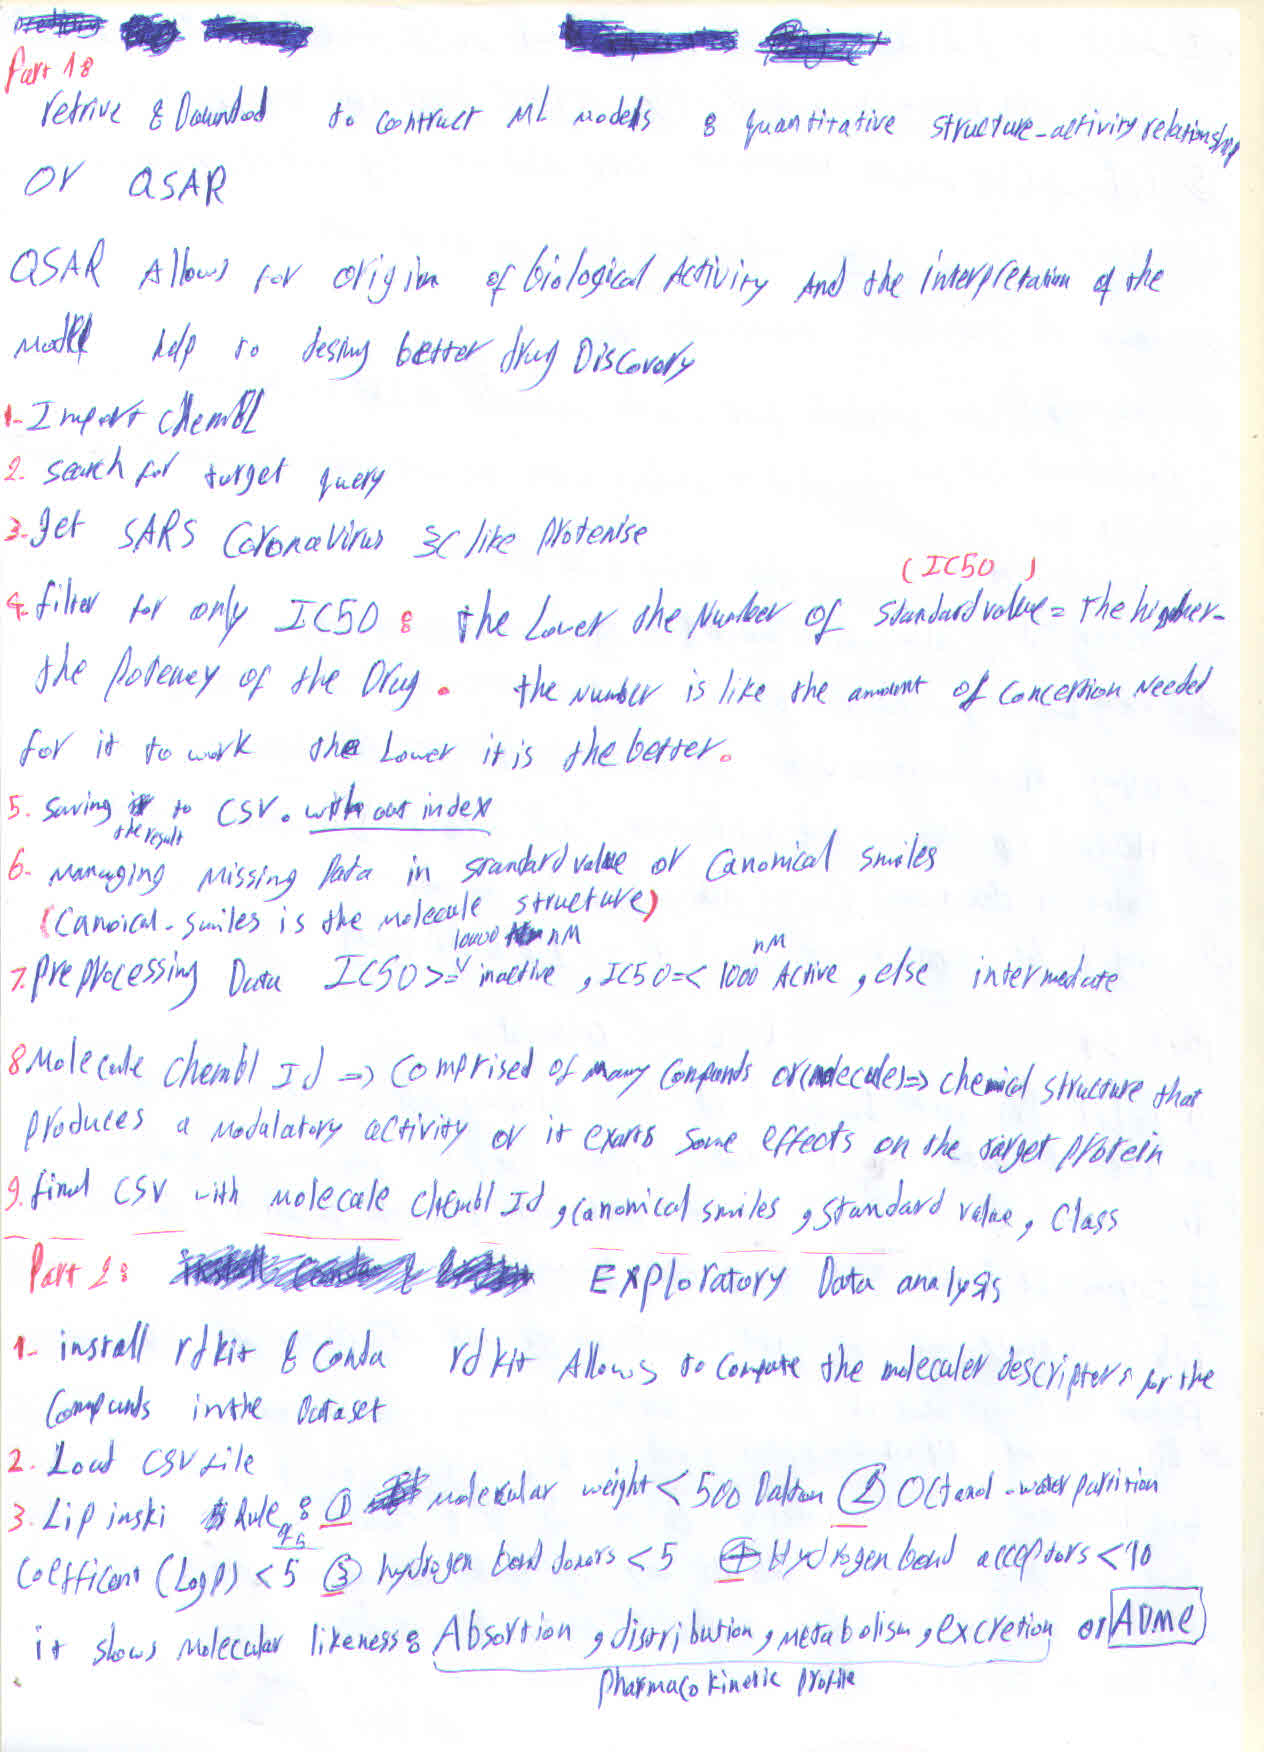 Part 1:
retrive & Download to contruct ML models : quantitative structure-activity relationship
or QSAR
QSAR Allows for origin of biological Activity And the interpretation of the
model help to desing better drug Discovery
1- Import chembl
2. search for target query
3- get SARS Coronavirus 3C like protenise
(IC50)
4- filter for only IC50 : the Lower the Number of standard value = the higher-
the potency of the Drug. the number is like the amount of concertion needed
for it to work the Lower it is the better.
5. saving to CSV. with out index
the result
6- managing missing Data in standard value or canonical smiles
(Canoical-smiles is the molecule structure)
10000 nM nM
7. preprocessing Data IC50 >= inactive , IC50 =< 1000 Active , else intermediate
8 Molecule chembl Id => comprised of many compunds or (molecules) => chemical structure that
produces a modalatory activity or it exarts some effects on the target protein
9. final CSV with molecule chembl Id , canonical smiles , standard value , class
Part 2: Exploratory Data analysis
1- install rdkit & conda rdkit Allows to compute the moleculer descriptors for the
compunds in the Dataset
2. Load CSV file
3. Lipinski Rule : ① molecular weight < 500 Dalton ② Octanol-water partition
of 5
coefficent (LogP) < 5 ③ hydrogen bond donors < 5 ④ Hydrogen bond acceptors < 10
it shows molecular likeness : Absortion , distribution , metabolism , excretion or ADME
pharmaco kinetic profile